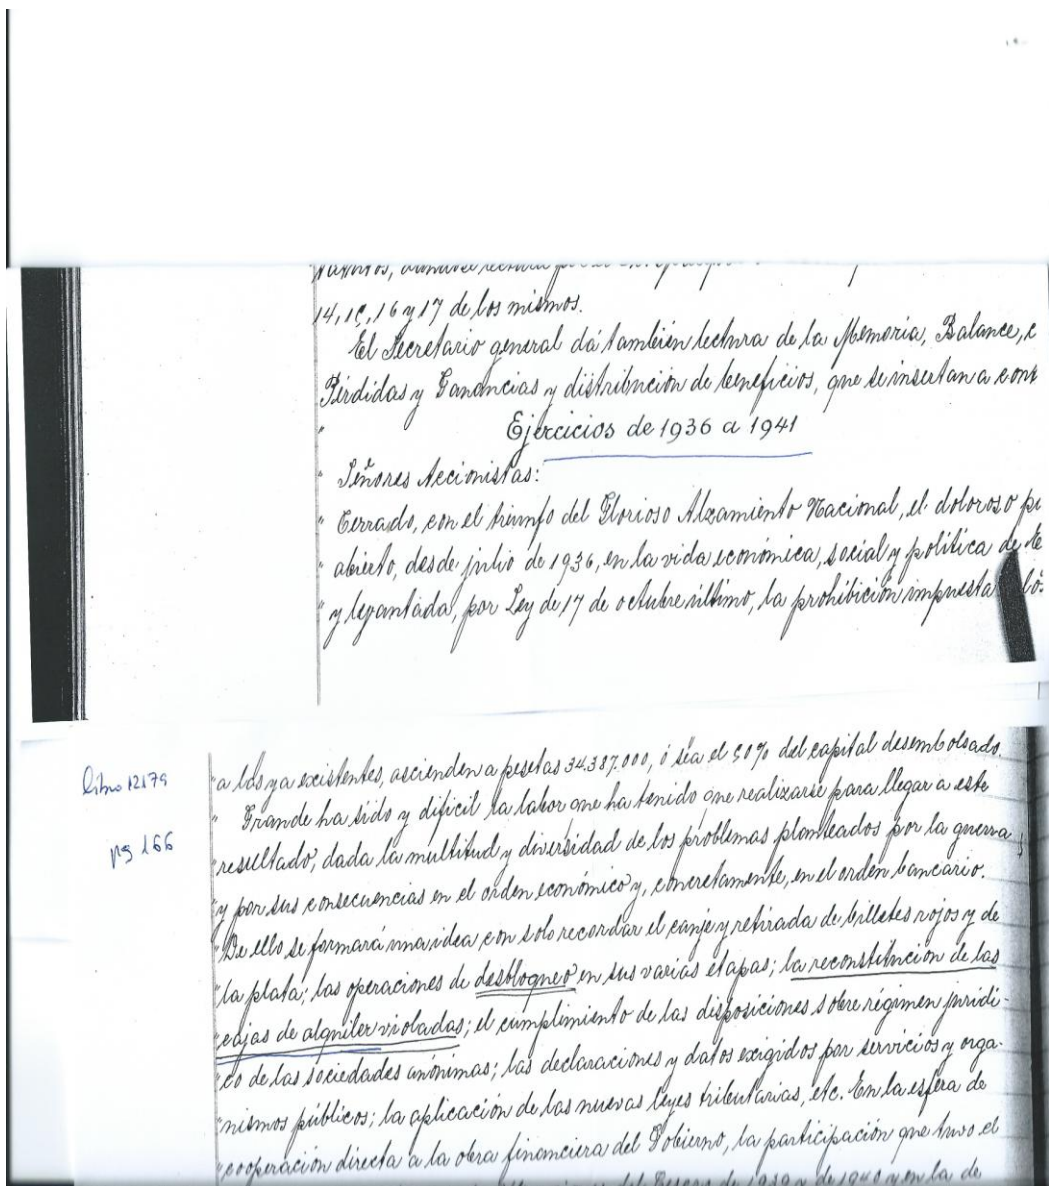 14, 15, 16 y 17 de los mismos.
El Secretario general dá también lectura de la Memoria, Balance, c
Pérdidas y Ganancias y distribución de beneficios, que se insertan a cont
" Ejercicios de 1936 a 1941
" Señores Accionistas:
" Cerrado, con el triunfo del Glorioso Alzamiento Nacional, el doloroso
" abierto, desde julio de 1936, en la vida económica, social y política de
" y levantada, por Ley de 17 de octubre último, la prohibición impuesta
libro 12179
pg 166
" a los ya existentes, ascienden a pesetas 34.387.000, ó sea el 50% del capital desembolsado.
" Grande ha sido y difícil la labor que ha tenido que realizarse para llegar a este
" resultado, dada la multitud y diversidad de los problemas planteados por la guerra
" y por sus consecuencias en el orden económico y, concretamente, en el orden bancario.
" De ello se formará una idea con solo recordar el canje y retirada de billetes rojos y de
" la plata; las operaciones de desbloqueo en sus varias etapas; la reconstitución de las
" cajas de alquiler violadas; el cumplimiento de las disposiciones sobre régimen jurídi-
" co de las sociedades anónimas; las declaraciones y datos exigidos por servicios y orga-
" nismos públicos; la aplicación de las nuevas leyes tributarias, etc. En la esfera de
" cooperación directa a la obra financiera del Gobierno, la participación que tuvo el
del Tesoro de 1939 y de 1940 y en la de